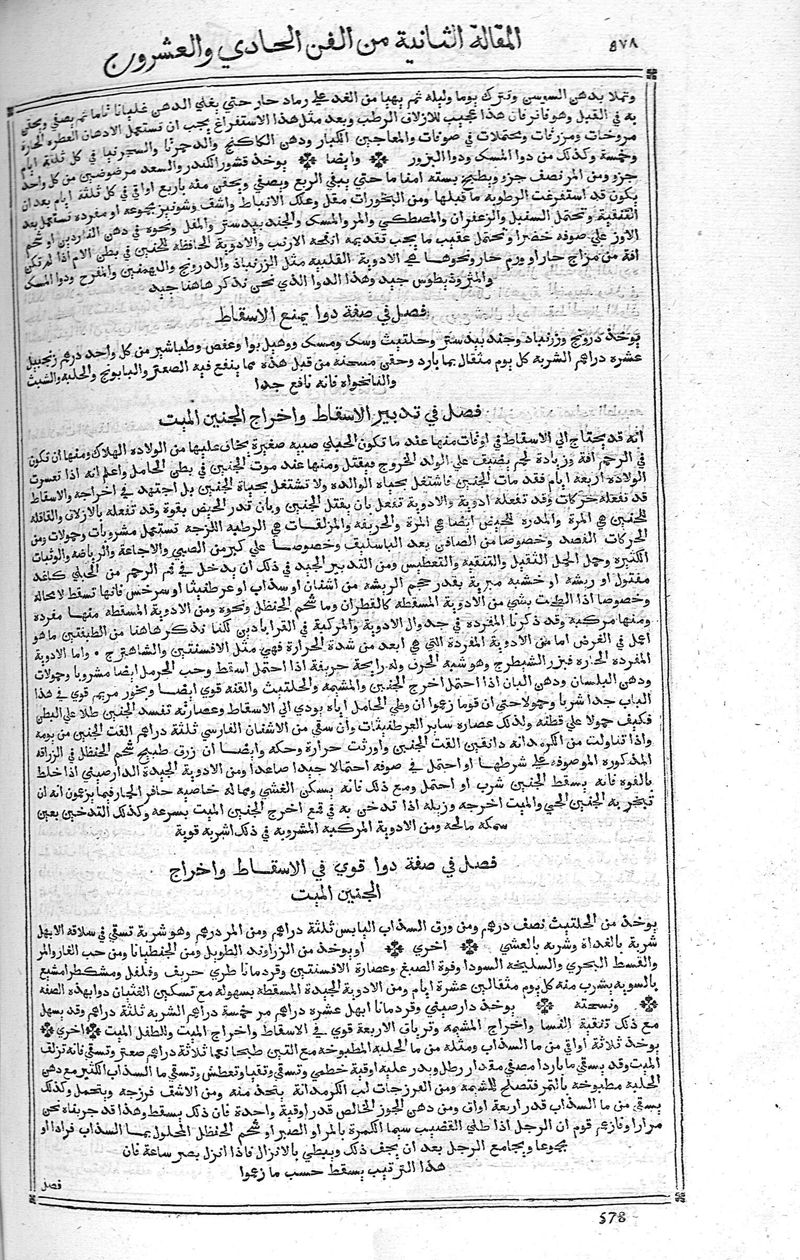 ٥٧٨
المقالة الثانية من الفن الحادي والعشرون
وتملا بدهن السوسن وتترك يوما وليله ثم يهيا من الغد على رماد حار حتي يغلي الدهن غليانا تاما ثم يصفي ويحقن
به في القبل وهو فاتر فان هذا عجيب للازلاق الرطب وبعد مثل هذا الاستفراغ يجب ان تستعمل الادهان العطره الحارة
مروخات ومزرقات ومحتملات في صوفات والمعاجين الكبار ودهن الكاكنج والدحمرثا والسجرنيا في كل ثلثة ايام
وخمسة وكذلك من دوا المسك ودوا البزور وايضا يوخذ قشور الكندر والسعد مرضوضين من كل واحد
جزو ومن المر نصف جزو ويطبخ بسته امنا ما حتي يبقي الربع ويصفي ويحقن منه باربع اواقي في كل ثلثة ايام بعد ان
يكون قد استفرغت الرطوبه ما قبلها ومن البخورات مقل وعلك الانباط واشف وشونيز مجموعه او مفرده تستعمل بعد
التنقية وتحتمل السنبل والزعفران والمصطكي والمر والمسك والجندبيدستر والمقل ونحوه في دهن الناردين او شحم
الاوز علي صوفه خضرا وتحتمل عقيب ما يجب تقديمه انفحه الارنب والادوية الحافظه للجنين في بطن الام اذا لم تكن
افة من مزاج حار او ورم حار ونحوها هي الادوية القلبيه مثل الزرنباذ والدرونج والبهمنين والمفرح ودوا المسك
والمثروذيطوس جيد وهذا الدوا الذي نحن نذكر هاهنا جيد
فصل في صفة دوا يمنع الاسقاط
يوخذ درونج وزرنباد وجندبيدستر وحلتيث وسك ومسك وهيل بوا وعفص وطباشير من كل واحد درهم زنجبيل
عشره دراهم الشربه كل يوم مثقال بما بارد وحقن مسخنه من قبل هذه مما ينفع فيه الصعتر والبابونج والحلبه والشبث
والنانخواه فانه نافع جدا
فصل في تدبير الاسقاط واخراج الجنين الميت
انه قد يحتاج الي الاسقاط في اوقات منها عند ما تكون الحبلي صبيه صغيرة يخاف عليها من الولاده الهلاك ومنها ان تكون
في الرحم افة وزيادة لحم يضيف علي الولد الخروج فيقتل ومنها عند موت الجنين في بطن الحامل واعلم انه اذا تعسرت
الولاده اربعة ايام فقد مات الجنين فاشتغل بحياه الوالده ولا تشتغل بحياة الجنين بل اجتهد في اخراجه والاسقاط
قد تفعله حركات وقد تفعله ادوية والادوية تفعل بان يقتل الجنين وبان تدر الحيض بقوة وقد تفعله بالازلاق والقاتله
للجنين هي المرة والمدره للحيض ايضا هي المرة والحريفه والمزلقات هي الرطبه اللزجة تستعمل مشروبات وحمولات ومن
الحركات الفصد وخصوصا من الصافن بعد الباسليف وخصوصا علي كبر من الصبي والاجاعة والرياضه والوثبات
الكثيره وحمل الحمل الثقيل والتنقيه والتعطيس ومن التدبير الجيد في ذلك ان يدخل في فم الرحم من الحبلي كاغد
مفتول او ريشه او خشبه مبرية بقدر حجم الريشه من اشنان او سذاب او عرطنيثا او سرخس فانها تسقط لا محالة
وخصوصا اذا الطخت بشي من الادوية المسقطه كالقطران وما شحم الحنظل ونحوه ومن الادوية المسقطه منها مفرده
ومنها مركبه وقد ذكرنا المفرده في جدوال الادوية والمركبة في القراباذين لكنا نذكر هاهنا من الطبقتين ما هو
اعمل في الغرض اما من الادوية المفردة التي هي ابعد من شدة الحرارة فهي مثل الافسنتين والشاهترج واما الادوية
المفرده الحاره فبزر الشيطرج وهو شبه الحرف وله رايحة حريفة اذا احتمل اسقط وحب الحرمل ايضا مشروبا وحمولات
ودهن البلسان ودهن البان اذا احتمل اخرج الجنين والمشيمه والحلتيث والقنه قوي ايضا وبخور مريم قوي في هذا
الباب جدا شربا وحمولا حتي ان قوما زعموا ان وطي الحامل اياه يودي الي الاسقاط وعصارته تفسد الجنين طلا علي البطن
فكيف حمولا علي قطنه وكذلك عصاره ساير العرطنيثات وان سقي من الاشنان الفارسي ثلثة دراهم القت الجنين من يومه
واذا تناولت من الكرمدانه دانقين القت الجنين واورثت حرارة وحكه وايضا ان زرق طبيخ شحم الحنظل في الزراقه
المذكوره الموصوفه علي شرطها او احتمل في صوفه احتمالا جيدا صاعدا ومن الادوية الجيدة الدارصيني اذا خلط
بالفوه فانه يسقط الجنين شرب او احتمل ومع ذلك فانه يسكن الغشي ومما له خاصيه حافر الحمار فيما يزعمون انه ان
تبخر به الجنين الحي والميت اخرجه وزبله اذا تدخن به في قمع اخرج الجنين الميت بسرعه وكذلك التدخين بعين
سمكه مالحه ومن الادوية المركبه المشروبه في ذلك اشربة قوية
فصل في صفة دوا قوي في الاسقاط واخراج
الجنين الميت
يوخذ من الحلتيث نصف درهم ومن ورق السذاب اليابس ثلثة دراهم ومن المر درهم وهو شربة تسقي في سلاقه الابهل
شربة بالغداة وشربه بالعشي اخري او يوخذ من الزراوند الطويل ومن الجنطيانا ومن حب الغار والمر
والقسط البحري والسليخه السودا وفوة الصبغ وعصارة الافسنتين وقردمانا طري حريف وفلفل ومشكطرامشيع
بالسويه يشرب منه كل يوم مثقالين عشرة ايام ومن الادوية الجيدة المسقطه بسهوله مع تسكين الغثيان دوا بهذه الصفه
ونسخته يوخذ دارصيني وقردمانا ابهل عشره دراهم مر خمسة دراهم الشربه ثلثة دراهم وقد يسهل
مع ذلك تنقية النفسا واخراج المشيمه وترياق الاربعة قوي في الاسقاط واخراج الميت وللطفل الميت اخري
يوخذ ثلاثة اواقي من ما السذاب ومثله من ما الحلبه المطبوخه مع التين طبخا نعما ثلاثة دراهم صعتر وتسقي فانه تزلف
الميت وقد يسقي ما باردا مصفي مقدار رطل ويذر عليه اوقية خطمي وتسقي وتقيا وتعطش وتسقي ما السذاب الكثير مع دهن
الحلبه مطبوخه بالتمر فتصلح للمشيمه ومن الفرزجات لب الكرمدانة يتخذ منه ومن الاشف فرزجه ويتحمل وكذلك
يسقي من ما السذاب قدر اربعة اواق ومن دهن الجوز الخالص قدر اوقية واحدة فان ذلك يسقط وهذا قد جربناه نحن
مرارا وزعم قوم ان الرجل اذا طلي القضيب سيما الكمرة بالمر او الصبر او شحم الحنظل المحلول بما السذاب فرادا او
مجموعا ويجامع الرجل بعد ان يجف ذلك ويبطي بالانزال فاذا انزل يصبر ساعة فان
هذا الترتيب يسقط حسب ما زعموا
فصل
578